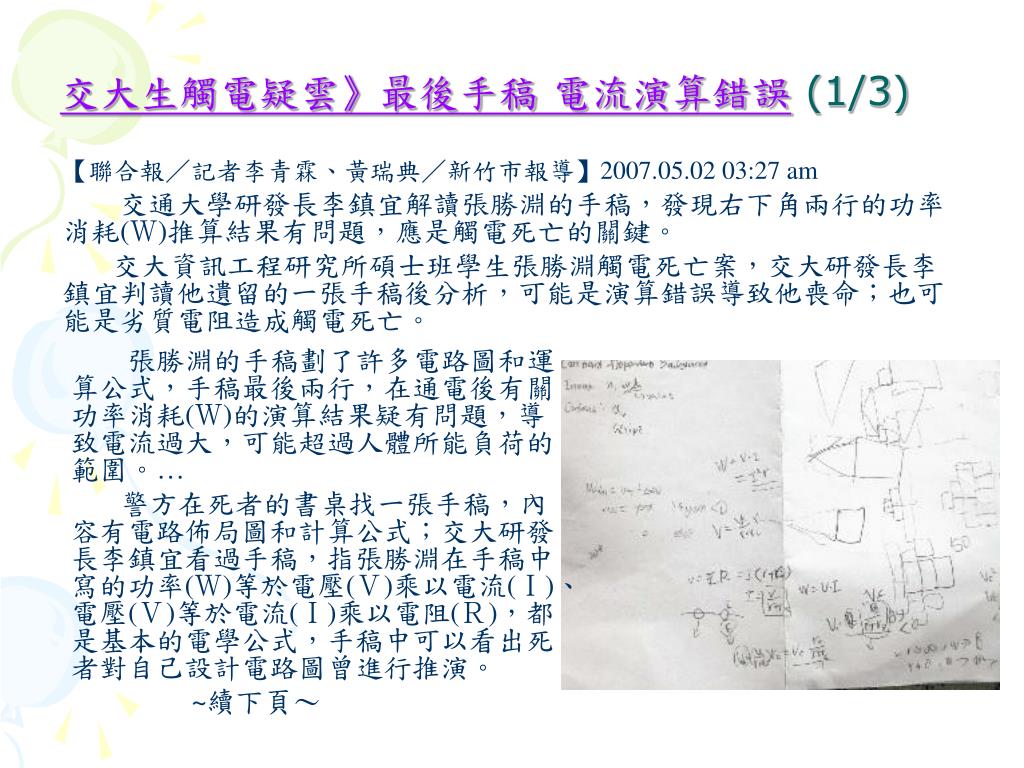 交大生觸電疑雲》最後手稿 電流演算錯誤 (1/3)
【聯合報╱記者李青霖、黃瑞典╱新竹市報導】2007.05.02 03:27 am
交通大學研發長李鎮宜解讀張勝淵的手稿，發現右下角兩行的功率
消耗(W)推算結果有問題，應是觸電死亡的關鍵。
交大資訊工程研究所碩士班學生張勝淵觸電死亡案，交大研發長李
鎮宜判讀他遺留的一張手稿後分析，可能是演算錯誤導致他喪命；也可
能是劣質電阻造成觸電死亡。
張勝淵的手稿劃了許多電路圖和運
算公式，手稿最後兩行，在通電後有關
功率消耗(W)的演算結果疑有問題，導
致電流過大，可能超過人體所能負荷的
範圍。…
警方在死者的書桌找一張手稿，內
容有電路佈局圖和計算公式；交大研發
長李鎮宜看過手稿，指張勝淵在手稿中
寫的功率(W)等於電壓(V)乘以電流(Ｉ)、
電壓(V)等於電流(Ｉ)乘以電阻(R)，都
是基本的電學公式，手稿中可以看出死
者對自己設計電路圖曾進行推演。
~續下頁～
Script
W = V·I
W = V·I
150